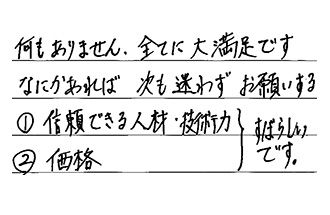 何もありません、全てに大満足です
なにかあれば 次も迷わず お願いする
① 信頼できる人材・技術力
② 価格
すばらしい
です。